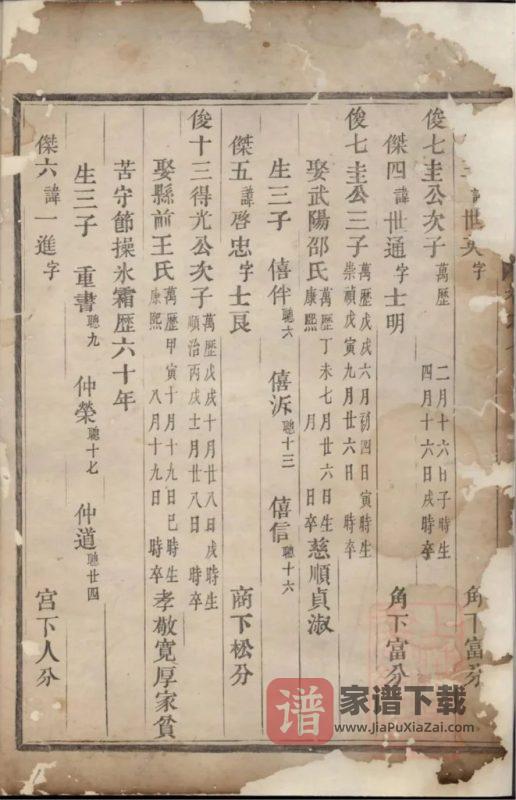 諱世奂字 角下富分
俊七圭公次子萬歷 二月十六日子時生 四月十六日戌時卒
傑四諱世通字士明 角下富分
俊七圭公三子萬歷戊戌六月初四日寅時生 崇禎戊寅九月廿六日 時卒
娶武陽邵氏萬歷丁未七月廿六日生 康熙 月 日卒慈順貞淑
生三子 僖伴聰六 僖泝聰十三 僖信聰十六
傑五諱啓忠字士良 商下松分
俊十三得光公次子萬歷戊戌十月廿八日戌時生 順治丙戌十一月廿八日 時卒
娶縣前王氏萬歷甲寅十月十九日巳時生 康熙 八月十九日 時卒孝敬寬厚家貧
苦守節操氷霜歷六十年
生三子 重書聰九 仲榮聰十七 仲道聰廿四
傑六諱一進字 宫下人分
谱 家谱下载
www.JiaPuXiaZai.com